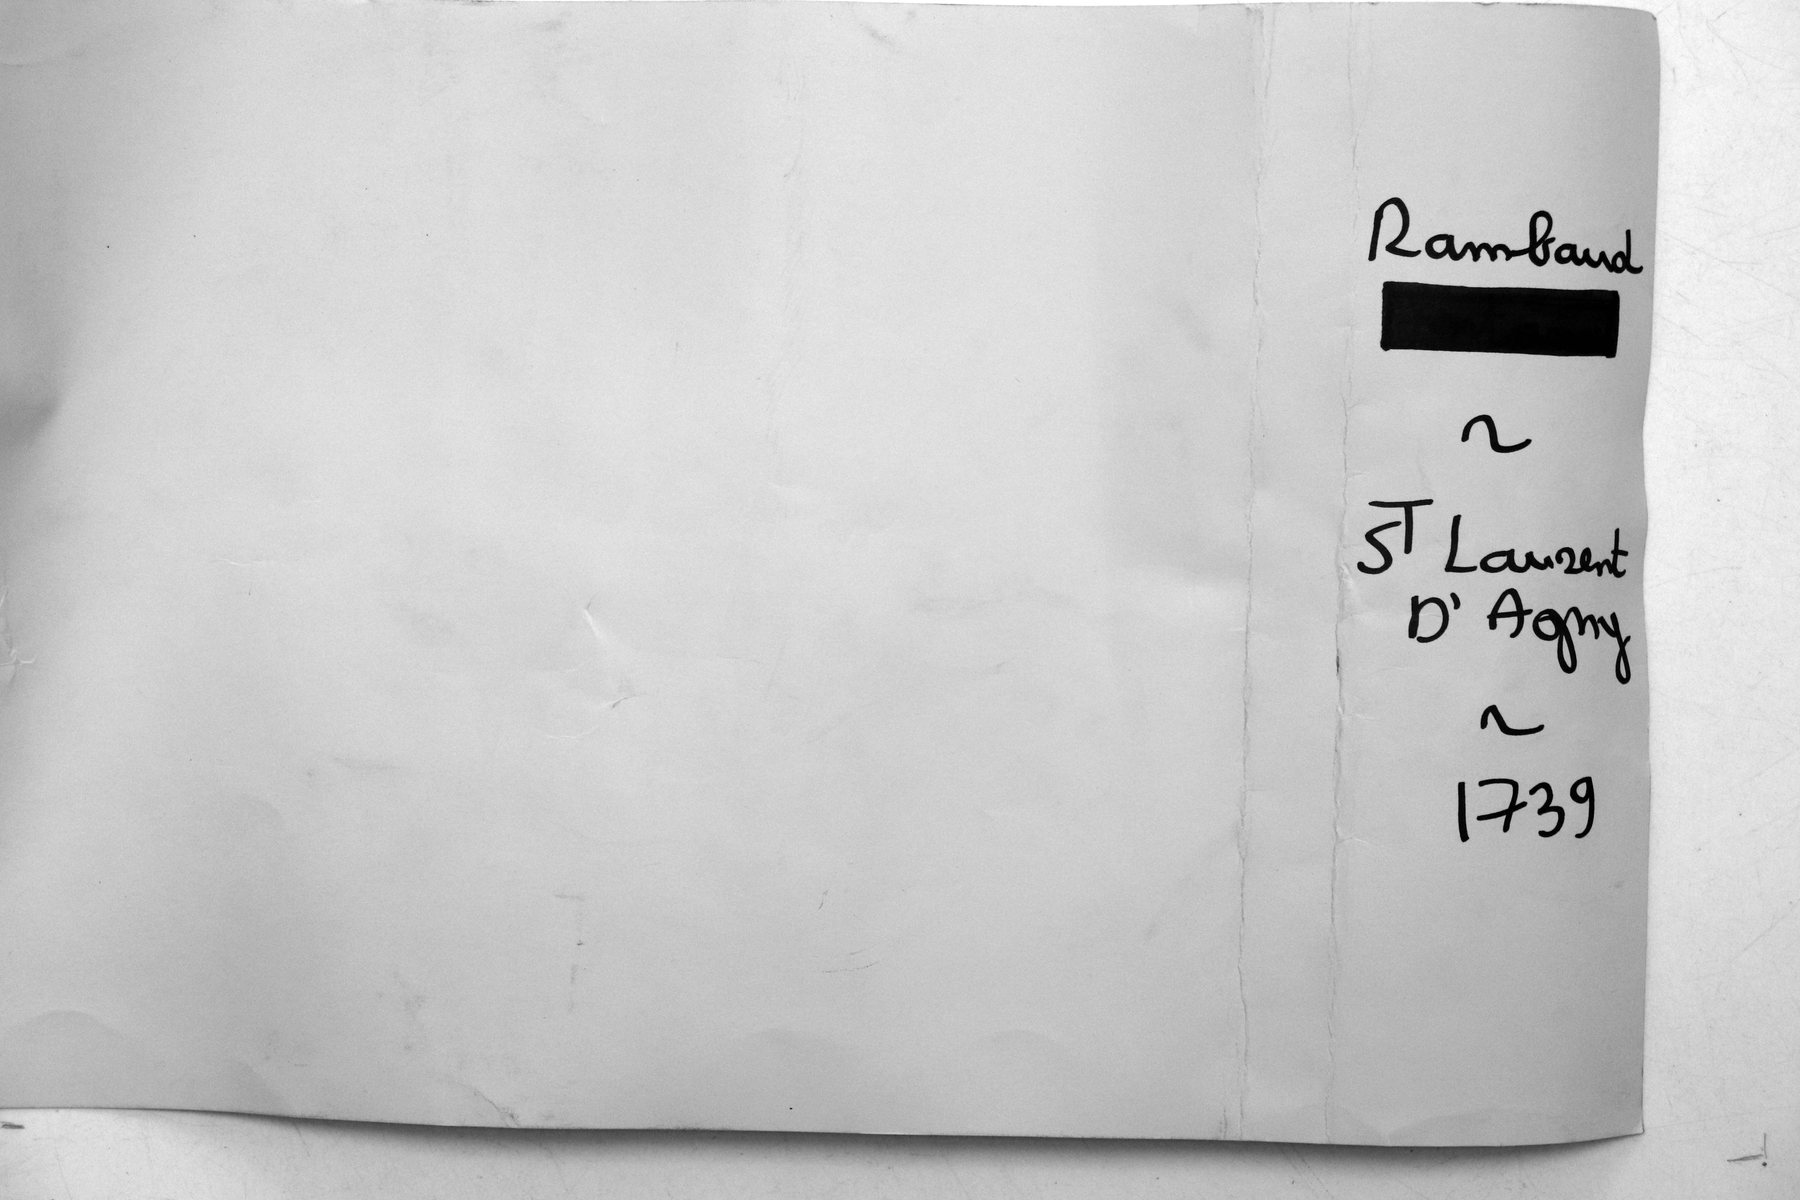 Rambaud
~
ST Laurent
D' Agny
~
1739